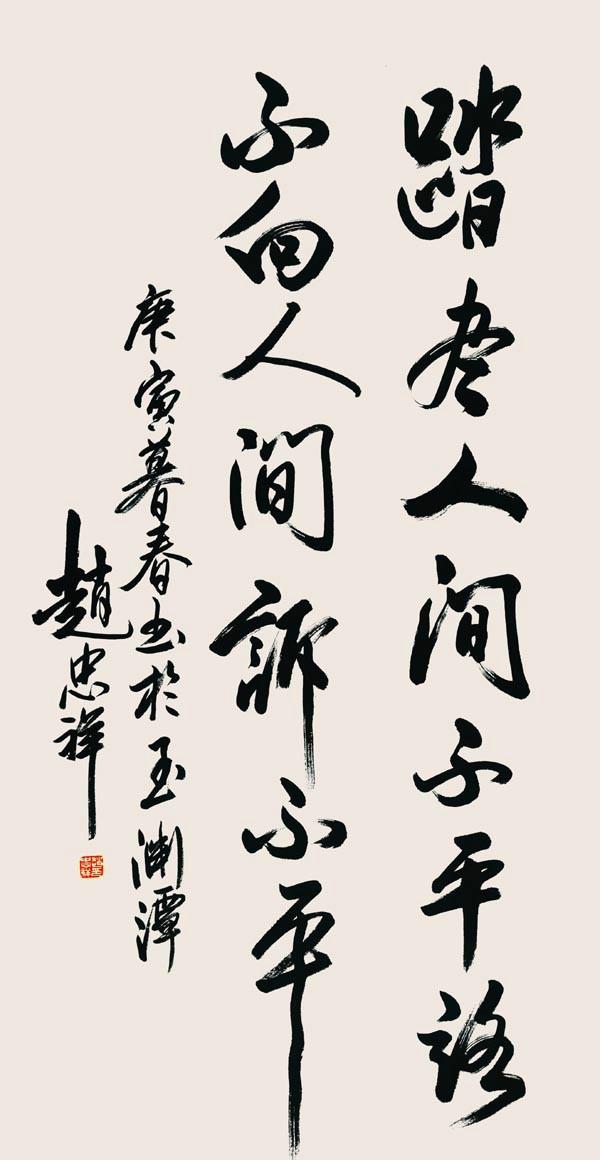 踏尽人间不平路
不向人间诉不平
庚寅暮春书於玉渊潭
趙忠祥